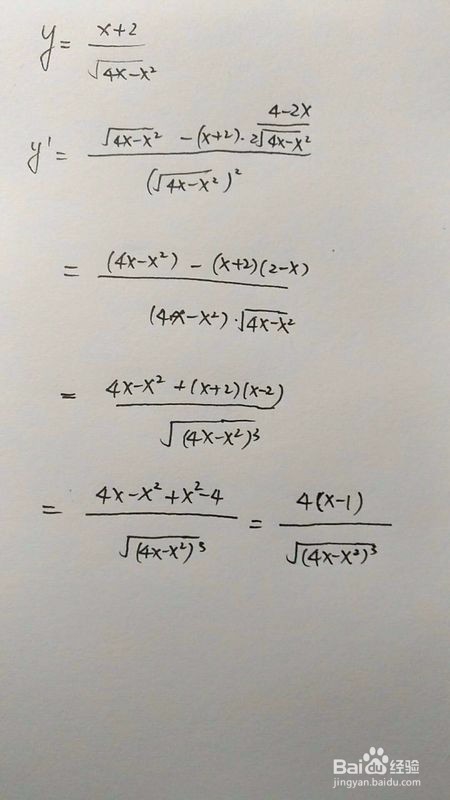 y = \frac{x+2}{\sqrt{4x-x^2}}
y' = \frac{\sqrt{4x-x^2} - (x+2) \cdot \frac{4-2x}{2\sqrt{4x-x^2}}}{(\sqrt{4x-x^2})^2}
= \frac{(4x-x^2) - (x+2)(2-x)}{(4x-x^2) \cdot \sqrt{4x-x^2}}
= \frac{4x-x^2 + (x+2)(x-2)}{\sqrt{(4x-x^2)^3}}
= \frac{4x-x^2+x^2-4}{\sqrt{(4x-x^2)^3}} = \frac{4(x-1)}{\sqrt{(4x-x^2)^3}}
Baidu经验
jingyan.baidu.com